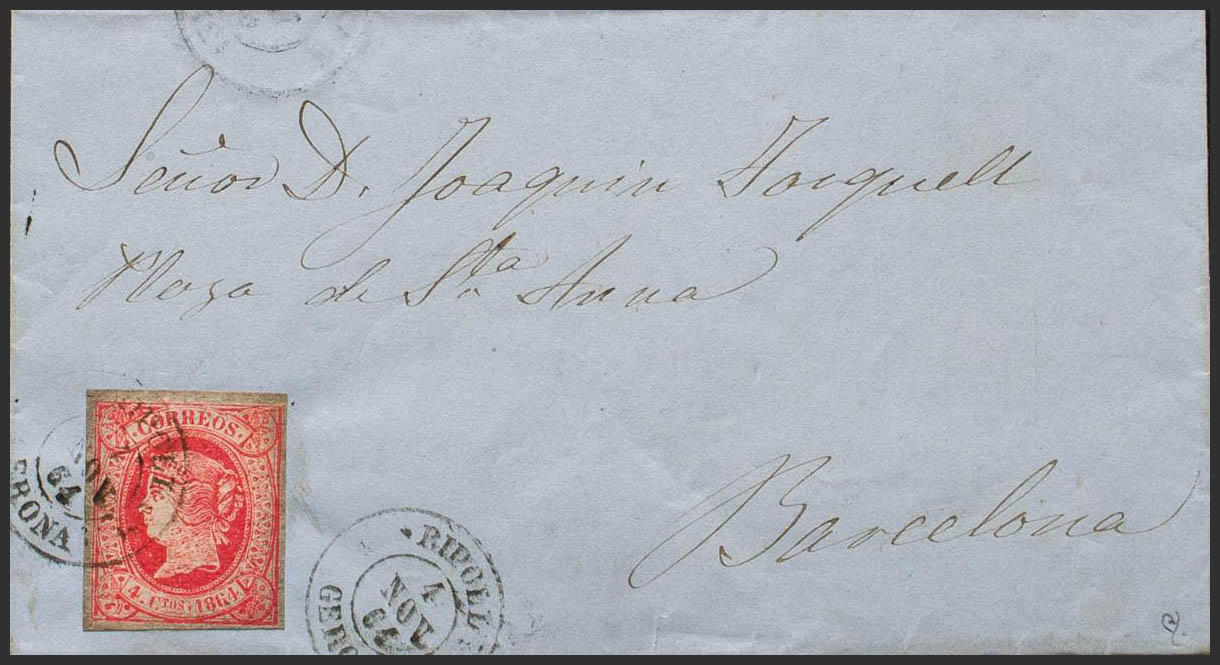 Señor D. Joaquin Torquell
Plaza de Sta Anna
Barcelona
CORREOS.
4. CTOS. 1864
RIPOLL
NOV.
64
GERONA
RIPOLL.
4
NOV.
64
GERO